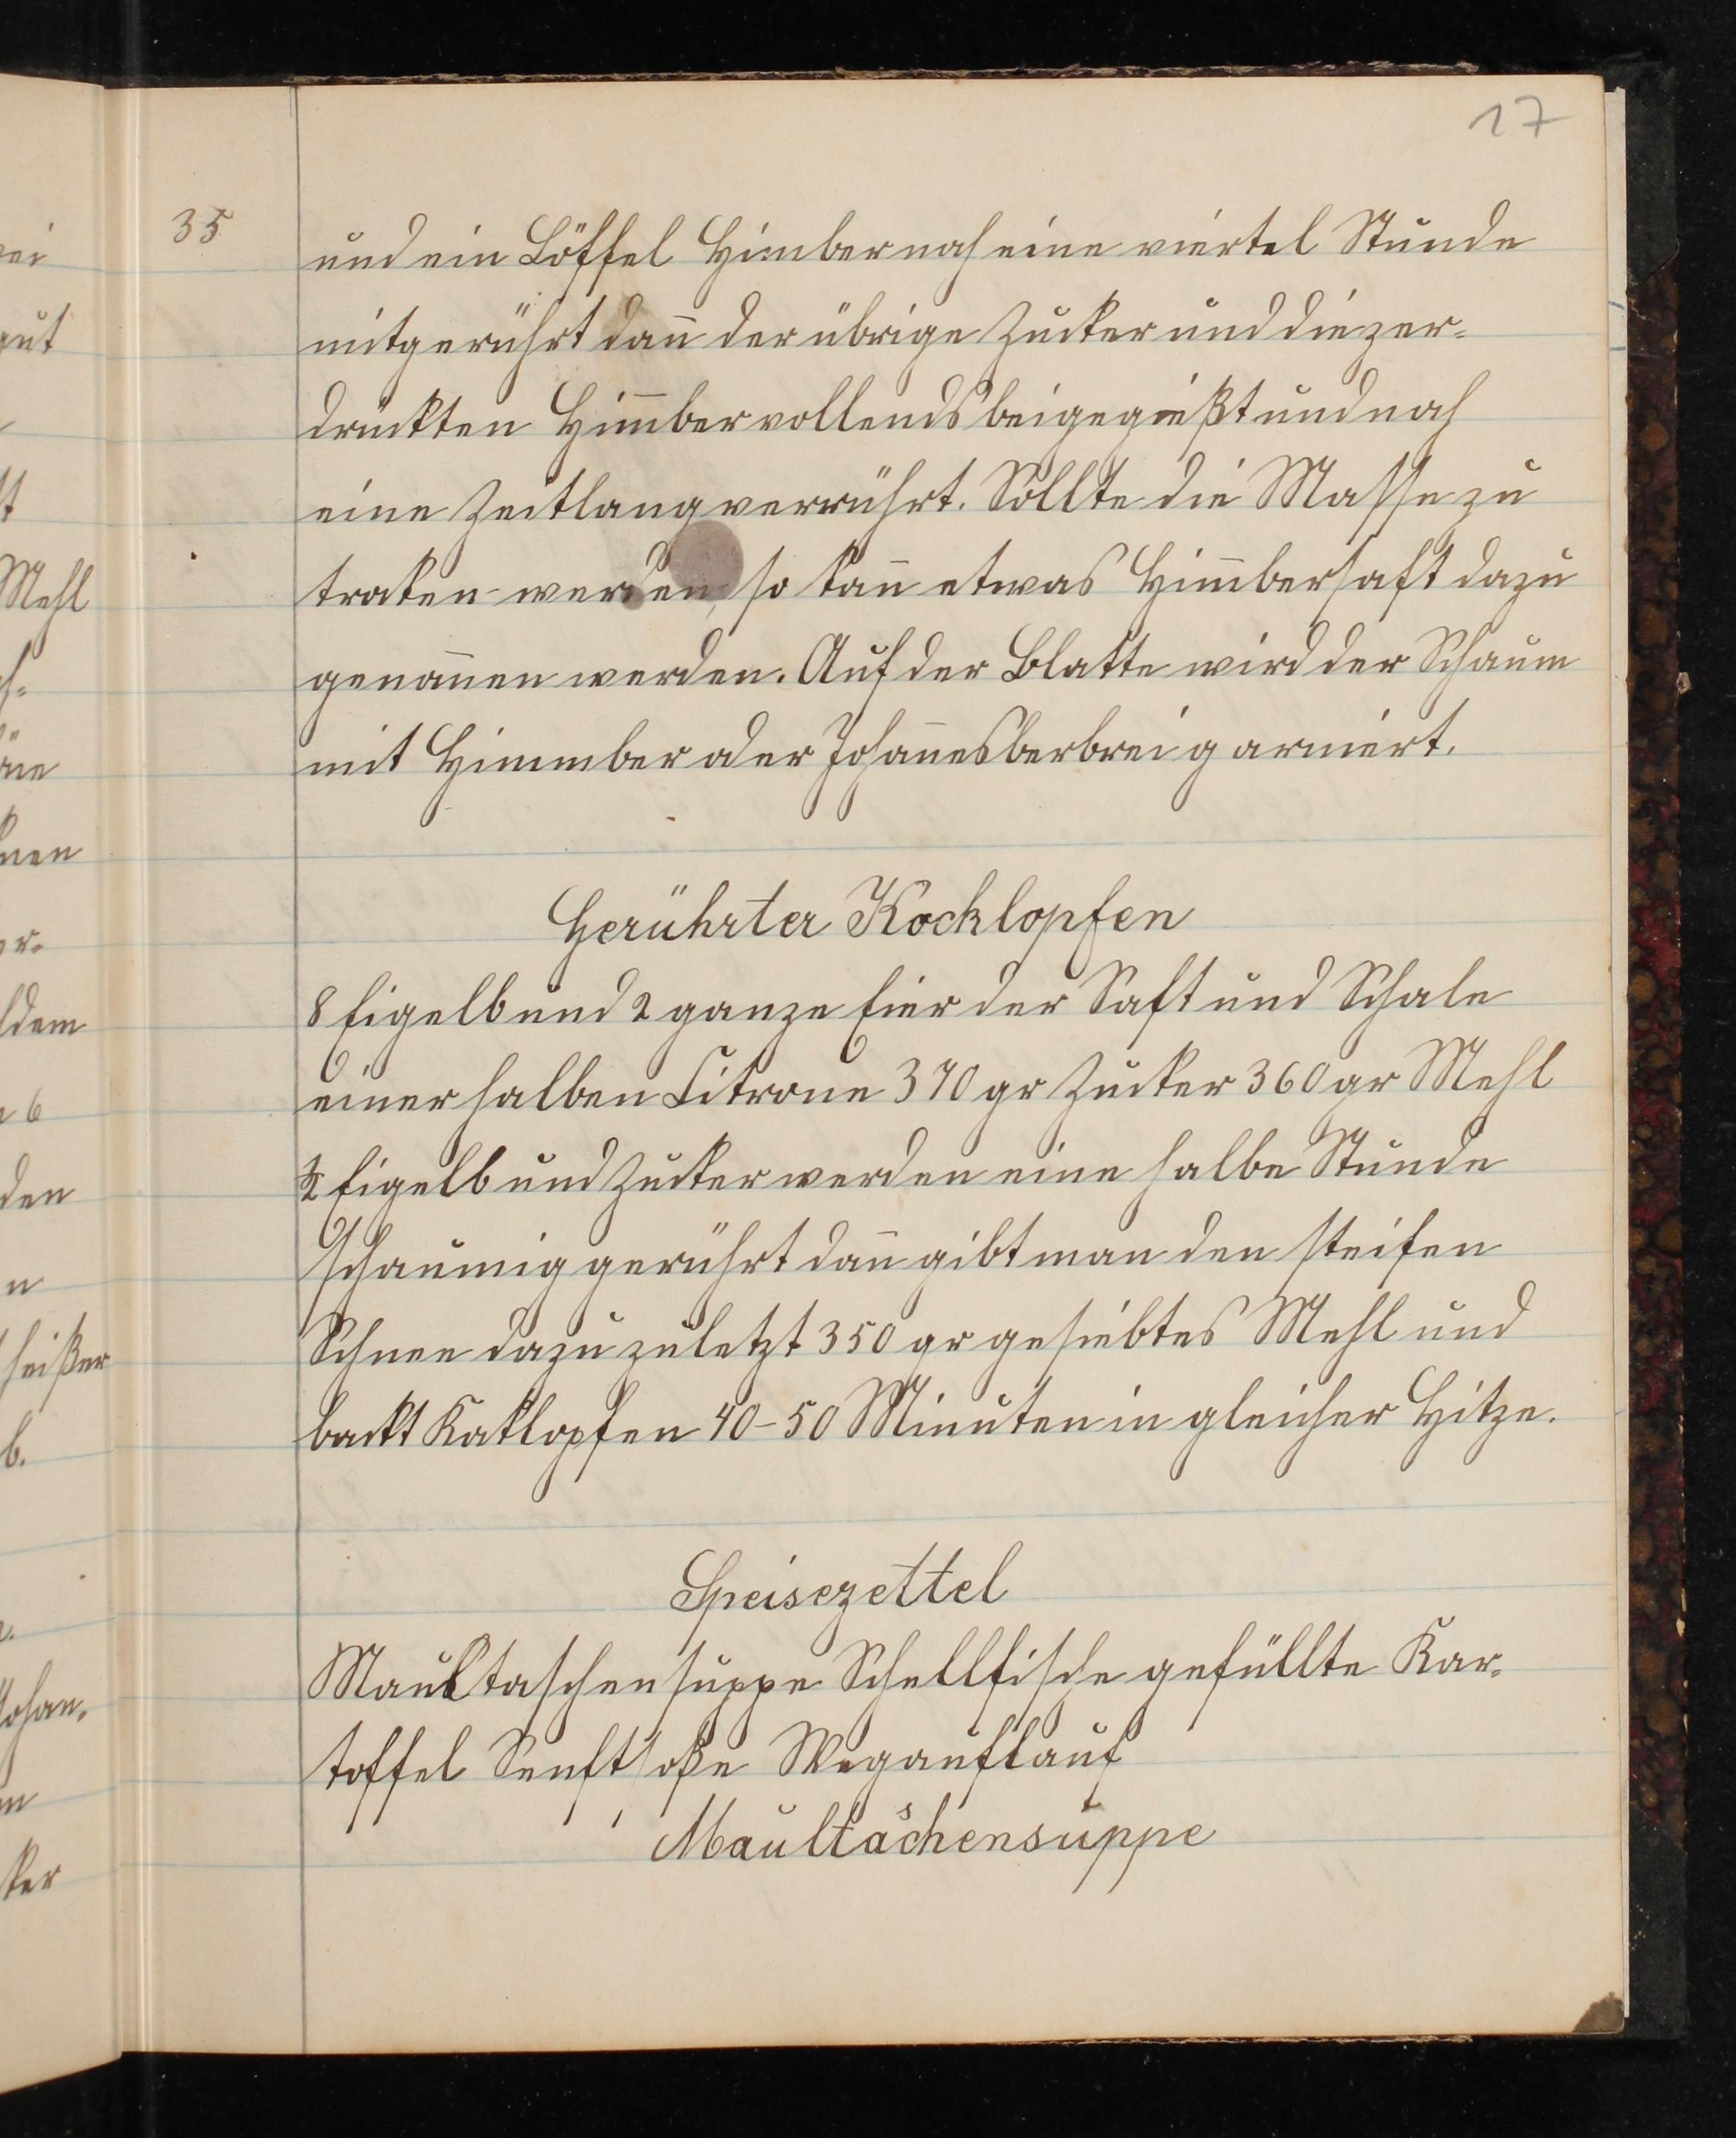 17
35
und ein Löffel Himber nach eine viertel Stunde
mitgerührt dan̄ der übrige Zucker und die zer-
drückten Him̄ber vollends beigegießt und nach
eine Zeitlang verrührt. Sollte die Masse zu
troken werden so kan̄ etwas Him̄bersaft dazu
genom̄en werden. Auf der Blatte wird der Schaum
mit Himmber oder Johan̄esberbrei garniert.
Gerührter Kocklopfen
8 Eigelb und 2 ganze Eier der Saft und Schale
einer halben Citrone 370 gr Zucker 360 gr Mehl
Eigelb und Zucker werden eine halbe Stunde
schaumig gerührt dan̄ gibt man den steifen
Schnee dazu zuletzt 350 gr gesiebtes Mehl und
backt Koklopfen 40-50 Minuten in gleicher Hitze.
Speisezettel
Maultaschensuppe Schellfische gefüllte Kar-
toffel Senftsoße Wegauflauf
Maultachensuppe